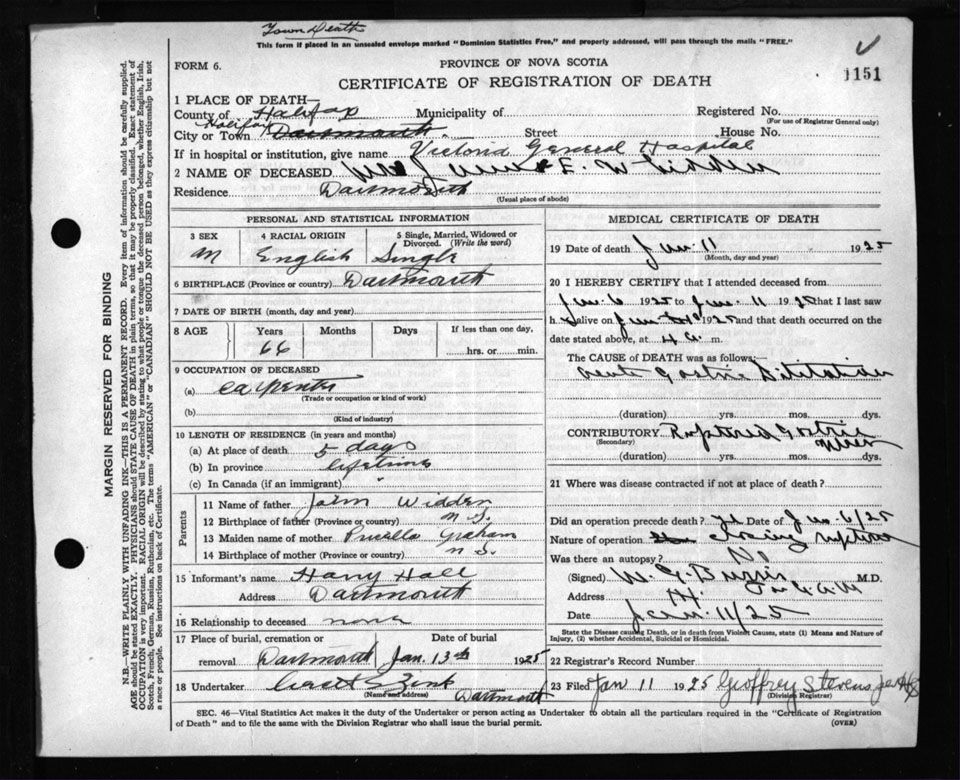 Town Death
This form if placed in an unsealed envelope marked "Dominion Statistics Free," and properly addressed, will pass through the mails "FREE."
FORM 6.
PROVINCE OF NOVA SCOTIA
CERTIFICATE OF REGISTRATION OF DEATH
1151
1 PLACE OF DEATH—
County of Halifax Municipality of Registered No.
(For use of Registrar General only)
City or Town Halifax Dartmouth Street House No.
If in hospital or institution, give name Victoria General Hospital
2 NAME OF DECEASED James E. Whidden
Residence Dartmouth
(Usual place of abode)
PERSONAL AND STATISTICAL INFORMATION
3 SEX 4 RACIAL ORIGIN 5 Single, Married, Widowed or Divorced. (Write the word)
M English Single
6 BIRTHPLACE (Province or country) Dartmouth
7 DATE OF BIRTH (month, day and year)
8 AGE Years Months Days If less than one day,
66 hrs. or min.
9 OCCUPATION OF DECEASED
(a) Carpenter
(Trade or occupation or kind of work)
(b)
(Kind of industry)
10 LENGTH OF RESIDENCE (in years and months)
(a) At place of death 5 days
(b) In province lifetime
(c) In Canada (if an immigrant)
Parents
11 Name of father John Widden
12 Birthplace of father (Province or country) N S.
13 Maiden name of mother Pricilla Graham
14 Birthplace of mother (Province or country) N S.
15 Informant's name Harry Hall
Address Dartmouth
16 Relationship to deceased none
17 Place of burial, cremation or removal Dartmouth Date of burial Jan. 13th 1925
18 Undertaker Zink
(Name and address) Dartmouth
MEDICAL CERTIFICATE OF DEATH
19 Date of death Jan. 11 1925
(Month, day and year)
20 I HEREBY CERTIFY that I attended deceased from
Jan 6 1925 to Jan. 11 1925 that I last saw
h alive on Jan 1925 and that death occurred on the
date stated above, at 4 a. m.
The CAUSE of DEATH was as follows:
Acute Gastric Dilitation
(duration) yrs. mos. dys.
CONTRIBUTORY Ruptured Gastric Ulcer
(Secondary)
(duration) yrs. mos. dys.
21 Where was disease contracted if not at place of death?
Did an operation precede death? yes Date of Jan. 6/25
Nature of operation closing rupture
Was there an autopsy? No
(Signed) M.D.
Address
Date Jan. 11/25
State the Disease causing Death, or in death from Violent Causes, state (1) Means and Nature of
Injury, (2) whether Accidental, Suicidal or Homicidal.
22 Registrar's Record Number
23 Filed Jan 11 1925 Geoffrey Stevens
(Division Registrar)
SEC. 46—Vital Statistics Act makes it the duty of the Undertaker or person acting as Undertaker to obtain all the particulars required in the "Certificate of Registration
of Death" and to file the same with the Division Registrar who shall issue the burial permit.
(OVER)
MARGIN RESERVED FOR BINDING
N.B.—WRITE PLAINLY WITH UNFADING INK—THIS IS A PERMANENT RECORD. Every item of information should be carefully supplied.
AGE should be stated EXACTLY. PHYSICIANS should STATE CAUSE OF DEATH in plain terms, so that it may be properly classified. Exact statement of
OCCUPATION is very important. RACIAL ORIGIN will be described by stating to what people or tongue the deceased person belonged, whether English, Irish,
Scotch, French, German, Russian, Ruthenian, etc. The terms "AMERICAN" or "CANADIAN" SHOULD NOT BE USED as they express citizenship but not
a race or people. See instructions on back of Certificate.